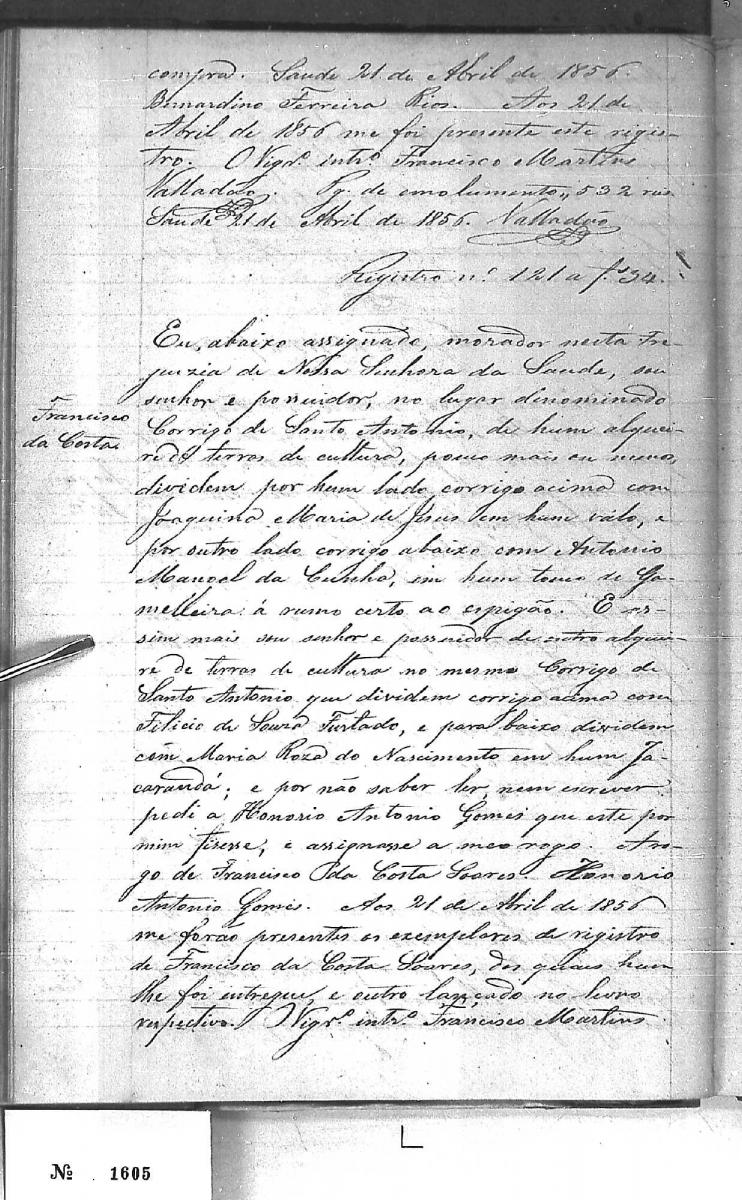 compra. Saude 21 de Abril de 1856.
Bernardino Ferreira Rios. Aos 21 de
Abril de 1856 me foi presente este regis-
tro. O Vigr.º intr.º Francisco Martins
Valladão. Pg. de emolumento,, 532 rs
Saude 21 de Abril de 1856. Valladão
Registro n.º 121 a f.s 34.
Eu, abaixo assignado, morador nesta Fre-
guezia de Nossa Senhora da Saude, sou
senhor e possuidor, no lugar denominado
Francisco
da Costa.
Corrigo de Santo Antonio, de hum alquei-
re de terras de cultura, pouco mais ou menos,
dividem por hum lado corrigo acima com
Joaquina Maria de Jesus em hum válo, e
por outro lado corrigo abaixo com Antonio
Manoel da Cunha, em hum touco de Ga-
melleira á rumo certo ao espigão. E as-
sim mais sou senhor e possuidor de outro alquei-
re de terras de cultura no mesmo Corrigo de
Santo Antonio que dividem corrigo acima com
Felicio de Souza Furtado, e para baixo dividem
com Maria Roza do Nascimento em hum Ja-
carandá; e por não saber ler, nem escrever
pedi a Honorio Antonio Gomes que este por
mim fisesse, e assignasse a meo rogo. Aro-
go de Francisco da Costa Soares. Honorio
Antonio Gomes. Aos 21 de Abril de 1856
me forão presentes os exemplares de registro
de Francisco da Costa Soares, dos quais hum
lhe foi entregue, e outro lançado no livro
respectivo. O Vigr.º intr.º Francisco Martins
Nº 1605